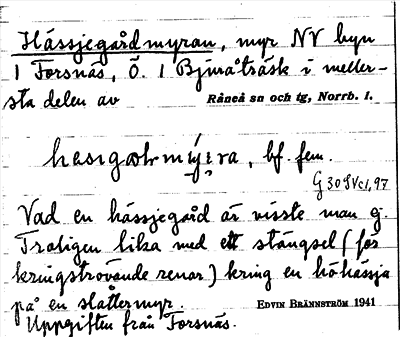 Hässjegårdmyran, myr NV byn
1 Forsnäs, Ö. 1 Bjuråträsk i meller-
sta delen av Råneå sn och tg, Norrb. l.
bf. fem.
G 30 SV c1, 97
Vad en hässjegård är visste man ej.
Troligen lika med ett stängsel (för
kringströvande renar) kring en höhässja
på en slåttermyr. EDVIN BRÄNNSTRÖM 1941
Uppgiften från Forsnäs.